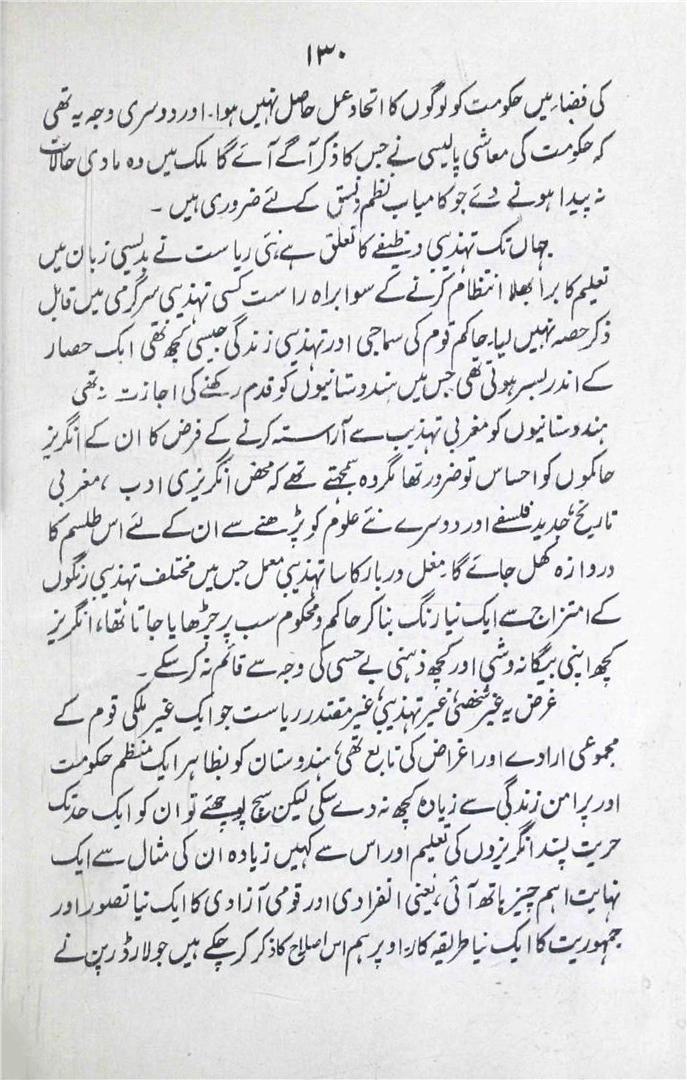 ۱۳۰
کی فضاء میں حکومت کو لوگوں کا اتحاد عمل حاصل نہیں ہوا۔ اور دوسری وجہ یہ تھی
کہ حکومت کی معاشی پالیسی نے جس کا ذکر آگے آئے گا ملک میں وہ مادی حالات
نہ پیدا ہونے دئے جو کامیاب نظم و نسق کے لئے ضروری ہیں۔
جہاں تک تہذیبی وظیفے کا تعلق ہے، نئی ریاست نے بدیسی زبان میں
تعلیم کا برا بھلا انتظام کرنے کے سوا براہ راست کسی تہذیبی سرگرمی میں قابل
ذکر حصہ نہیں لیا۔ حاکم قوم کی سماجی اور تہذیبی زندگی جیسی کچھ تھی ایک حصار
کے اندر بسر ہوتی تھی جس میں ہندوستانیوں کو قدم رکھنے کی اجازت نہ تھی
ہندوستانیوں کو مغربی تہذیب سے آراستہ کرنے کے فرض کا ان کے انگریز
حاکموں کو احساس تو ضرور تھا مگر وہ سمجھتے تھے کہ محض انگریزی ادب، مغربی
تاریخ، جدید فلسفے اور دوسرے نئے علوم کو پڑھنے سے ان کے لئے اس طلسم کا
دروازہ کھل جائے گا۔ مغل دربار کا سا تہذیبی معمل جس میں مختلف تہذیبی رنگوں
کے امتزاج سے ایک نیا رنگ بنا کر حاکم و محکوم سب پر چڑھایا جاتا تھا، انگریز
کچھ اپنی بیگانہ وشی اور کچھ ذہنی بے حسی کی وجہ سے قائم نہ کر سکے۔
غرض یہ غیر شخصی، غیر تہذیبی، غیر مقتدر ریاست جو ایک غیر ملکی قوم کے
مجموعی ارادے اور اغراض کی تابع تھی، ہندوستان کو بظاہر ایک منظم حکومت
اور پرامن زندگی سے زیادہ کچھ نہ دے سکی لیکن سچ پوچھئے تو ان کو ایک حد تک
حریت پسند انگریزوں کی تعلیم اور اس سے کہیں زیادہ ان کی مثال سے ایک
نہایت اہم چیز ہاتھ آئی، یعنی انفرادی اور قومی آزادی کا ایک نیا تصور اور
جمہوریت کا ایک نیا طریقہ کار۔ اوپر ہم اس اصلاح کا ذکر کر چکے ہیں جو لارڈ رپن نے